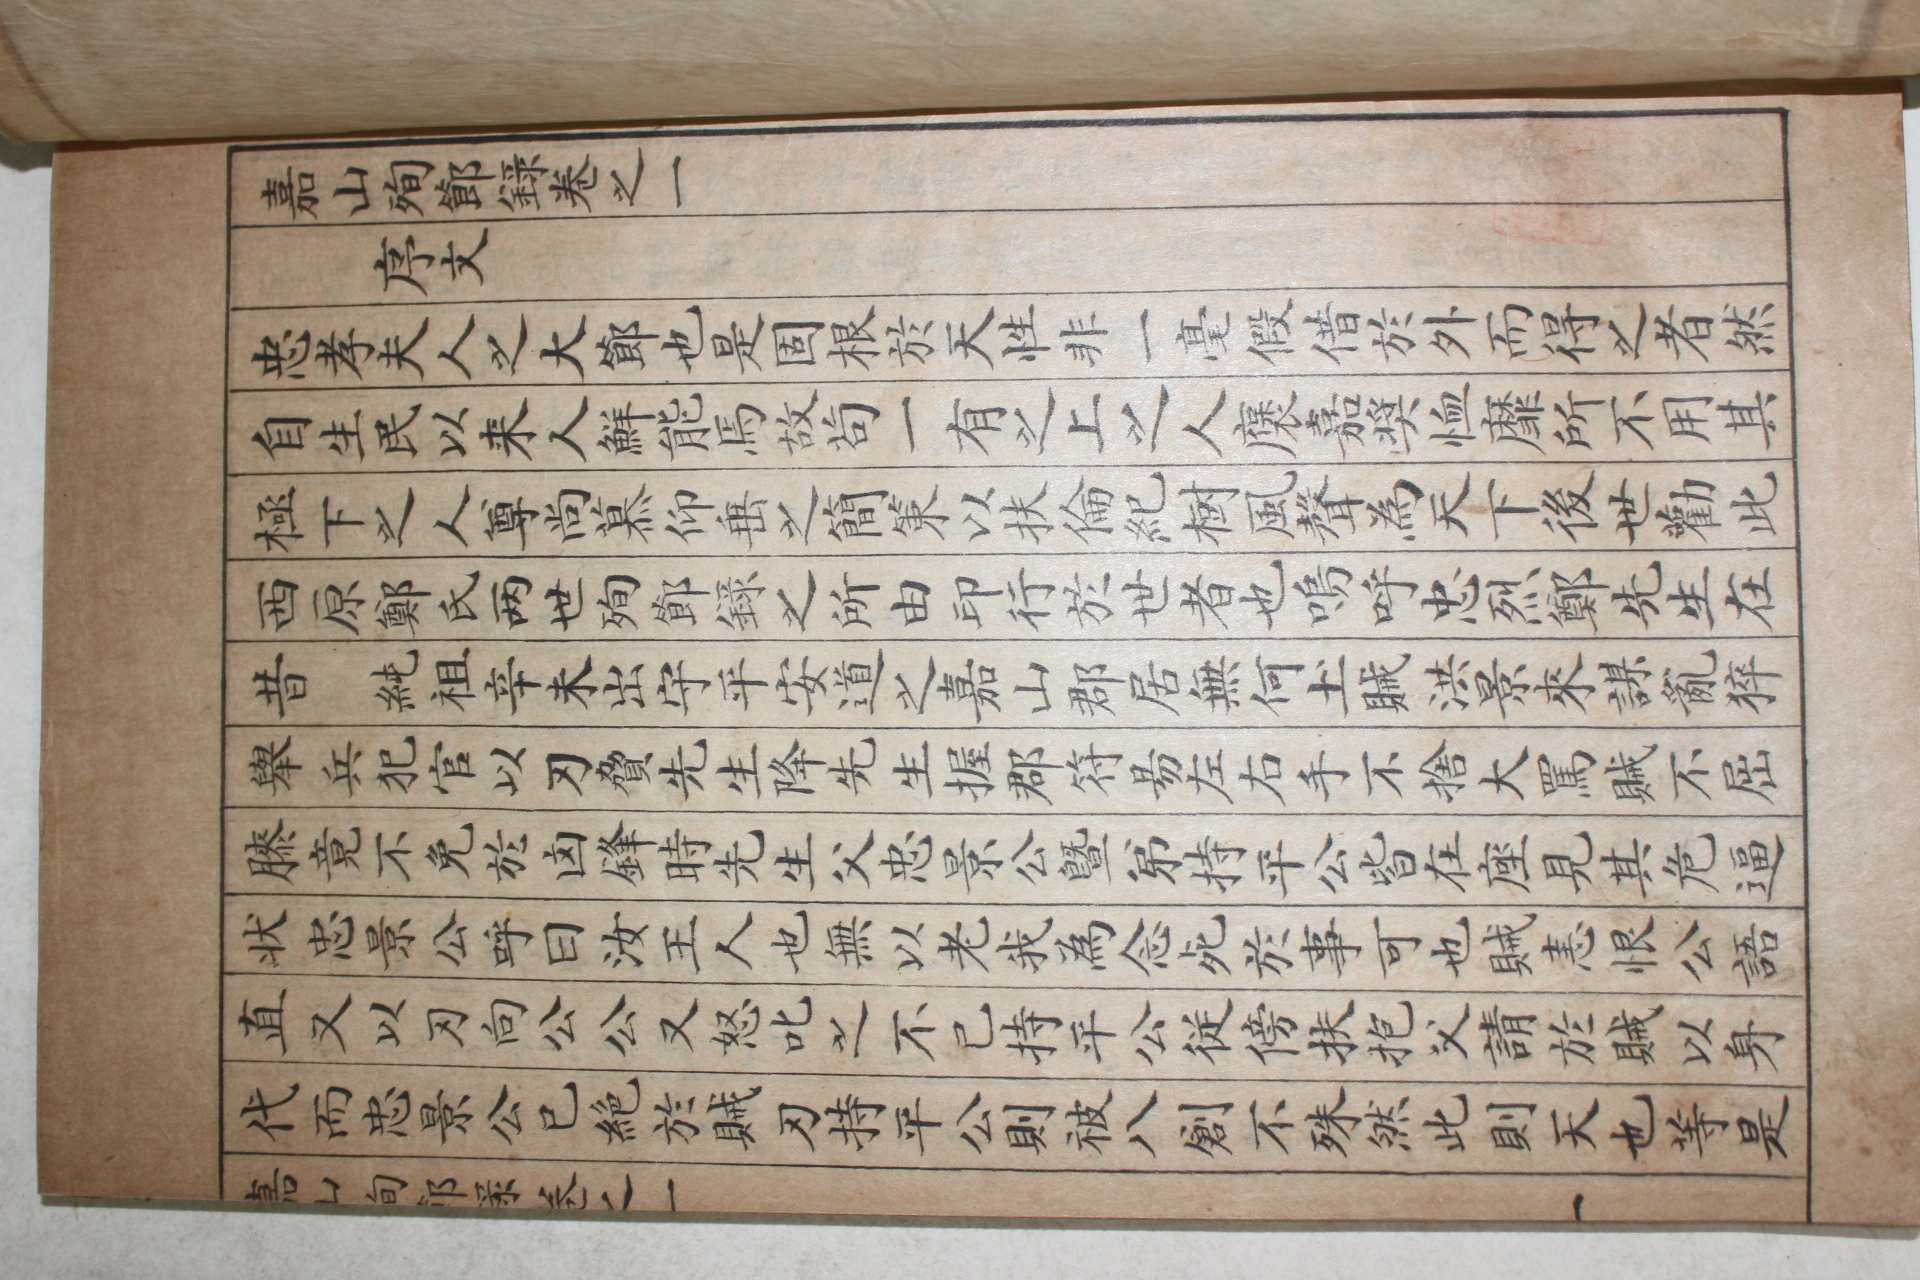 嘉山殉節錄卷之一
序文
忠孝夫人之大節也是固根於天性非一毫假借於外而得之者然
自生民以来人鮮能焉故苟一有之上之人褒嘉奬恤靡所不用其
極下之人尊尚慕仰垂之簡策以扶倫紀樹風聲為天下後世勸此
西原鄭氏两世殉節錄之所由印行於世者也嗚呼忠烈鄭先生在
昔　純祖辛未出守平安道之嘉山郡居無何土賊洪景來謀亂猝
舉兵犯官以刃脅先生降先生握郡符易左右手不捨大罵賊不屈
膝竟不免於凶鋒時先生父忠景公曁弟持平公皆在座見其危逼
状忠景公呼曰汝王人也無以老我為念死於事可也賊恚恨公語
直又以刃向公公又怒叱之不已持平公従傍扶抱父請於賊以身
代而忠景公已絕於賊刃持平公則被八創不殊然此則天也等是
嘉山殉節錄卷之一　一